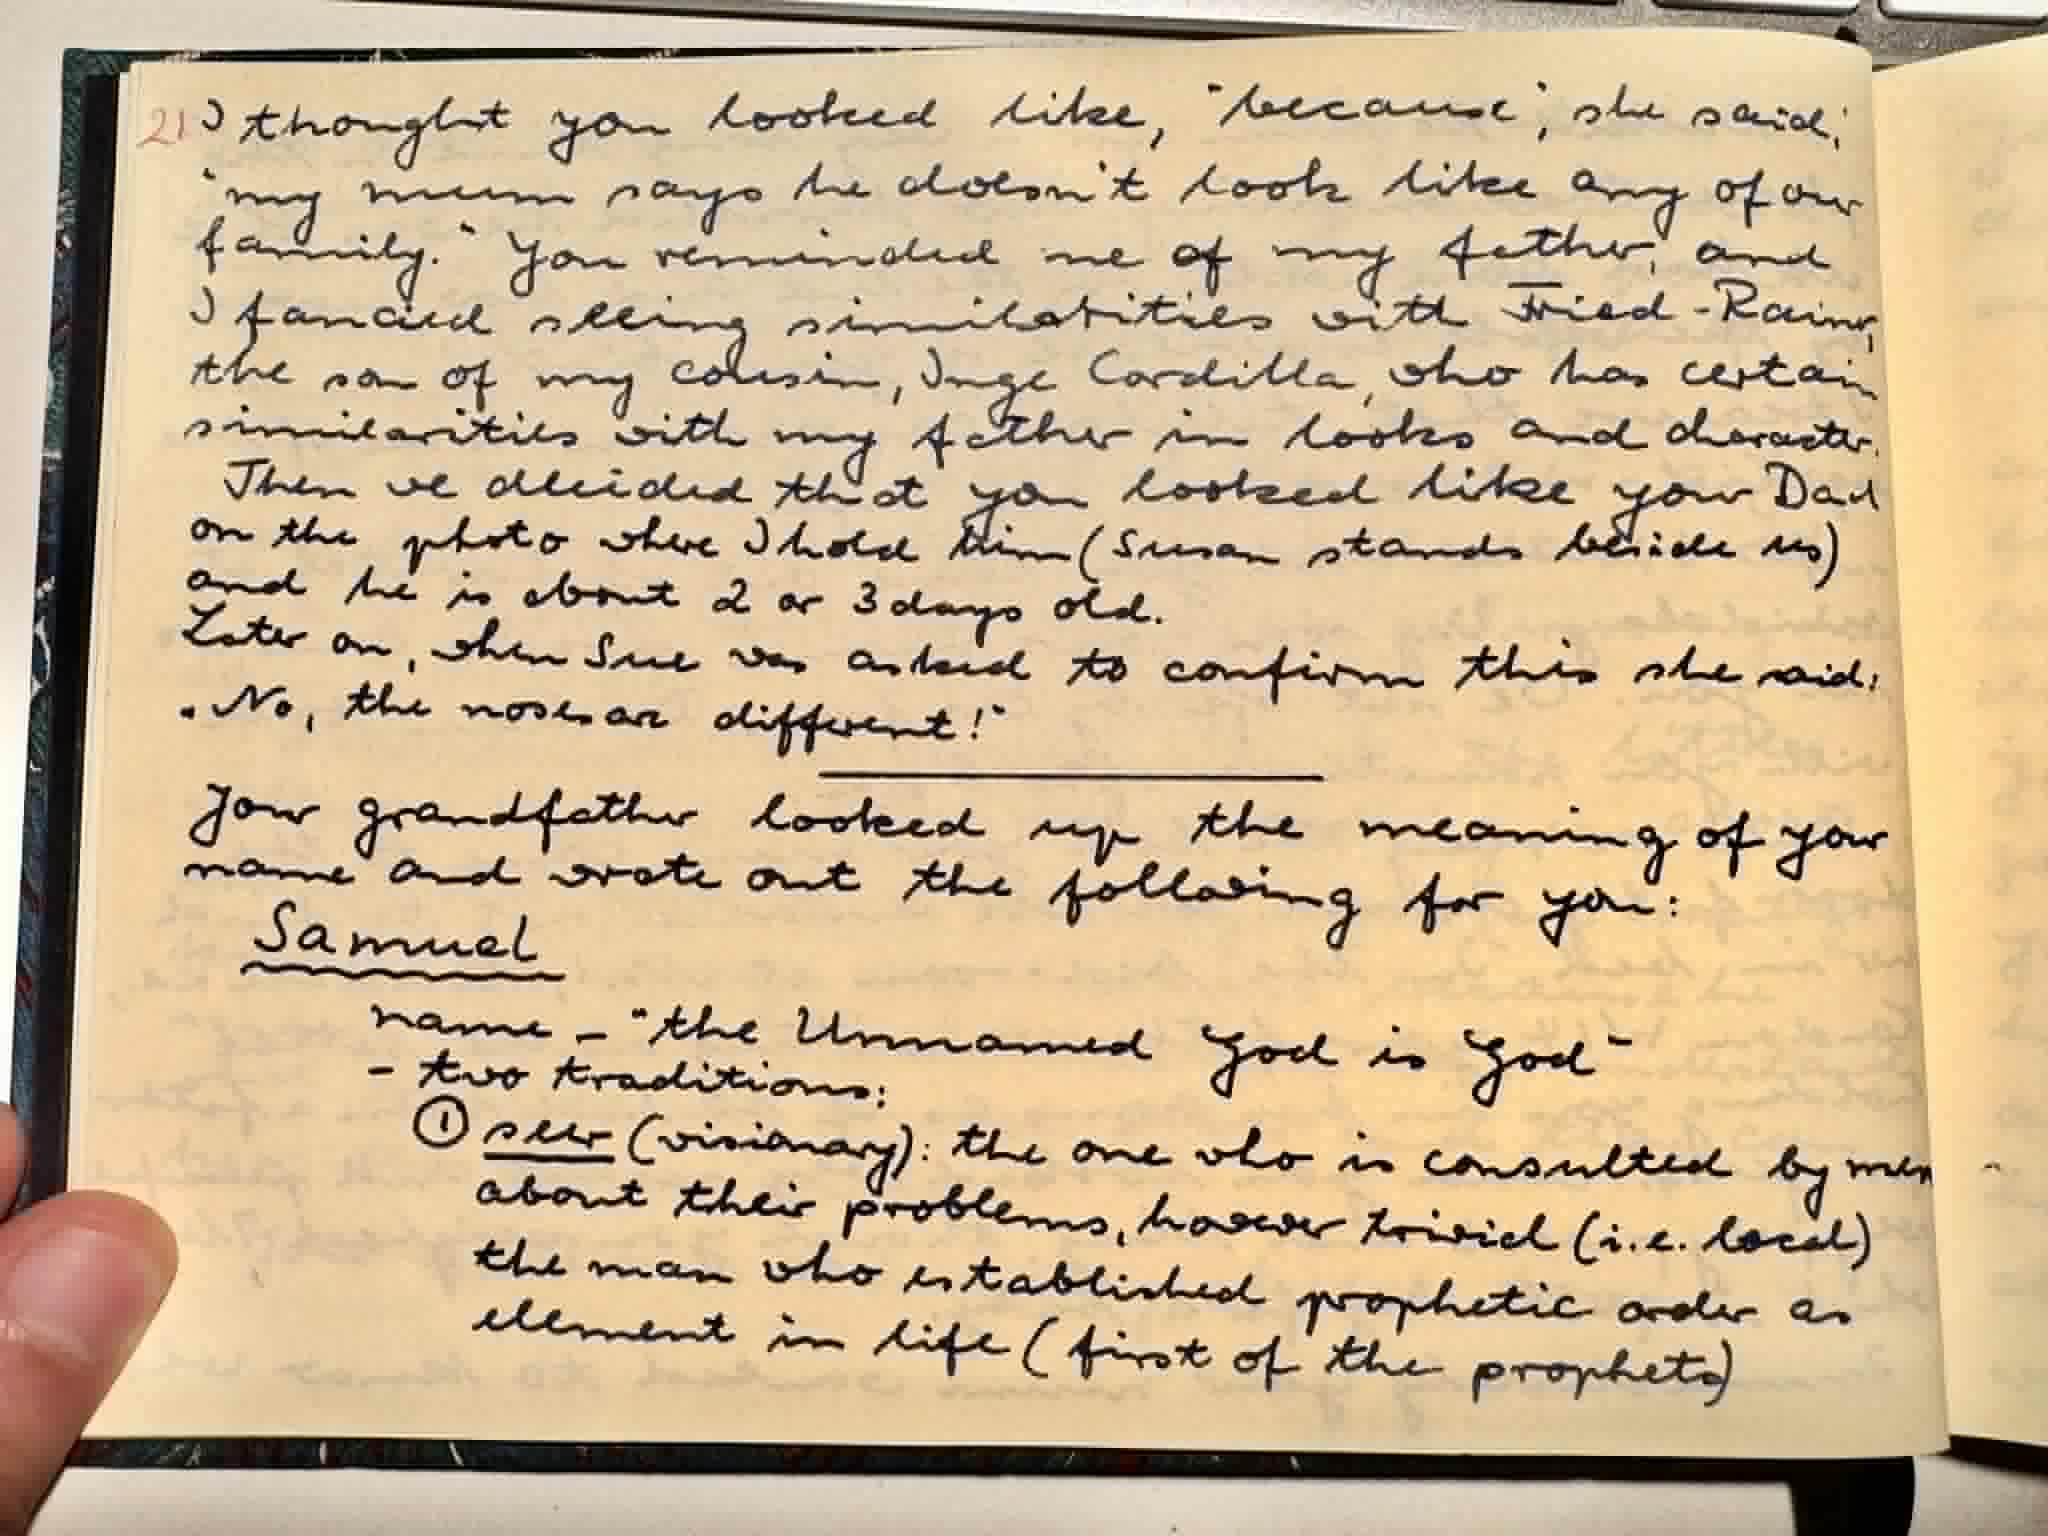 21 I thought you looked like, "because", she said,
"my mum says he doesn't look like any of our
family." You reminded me of my father, and
I fancied seeing similarities with Fried-Rainer,
the son of my cousin, Inge Cordilla, who has certain
similarities with my father in looks and character.
Then we decided that you looked like your Dad
on the photo where I hold him (Susan stands beside us)
and he is about 2 or 3 days old.
Later on, when Sue was asked to confirm this she said:
"No, the noses are different!"
Your grandfather looked up the meaning of your
name and wrote out the following for you:
Samuel
name – "the Unnamed God is God"
- two traditions:
① seer (visionary): the one who is consulted by men
about their problems, however trivial (i.e. local)
the man who established prophetic order as
element in life (first of the prophets)